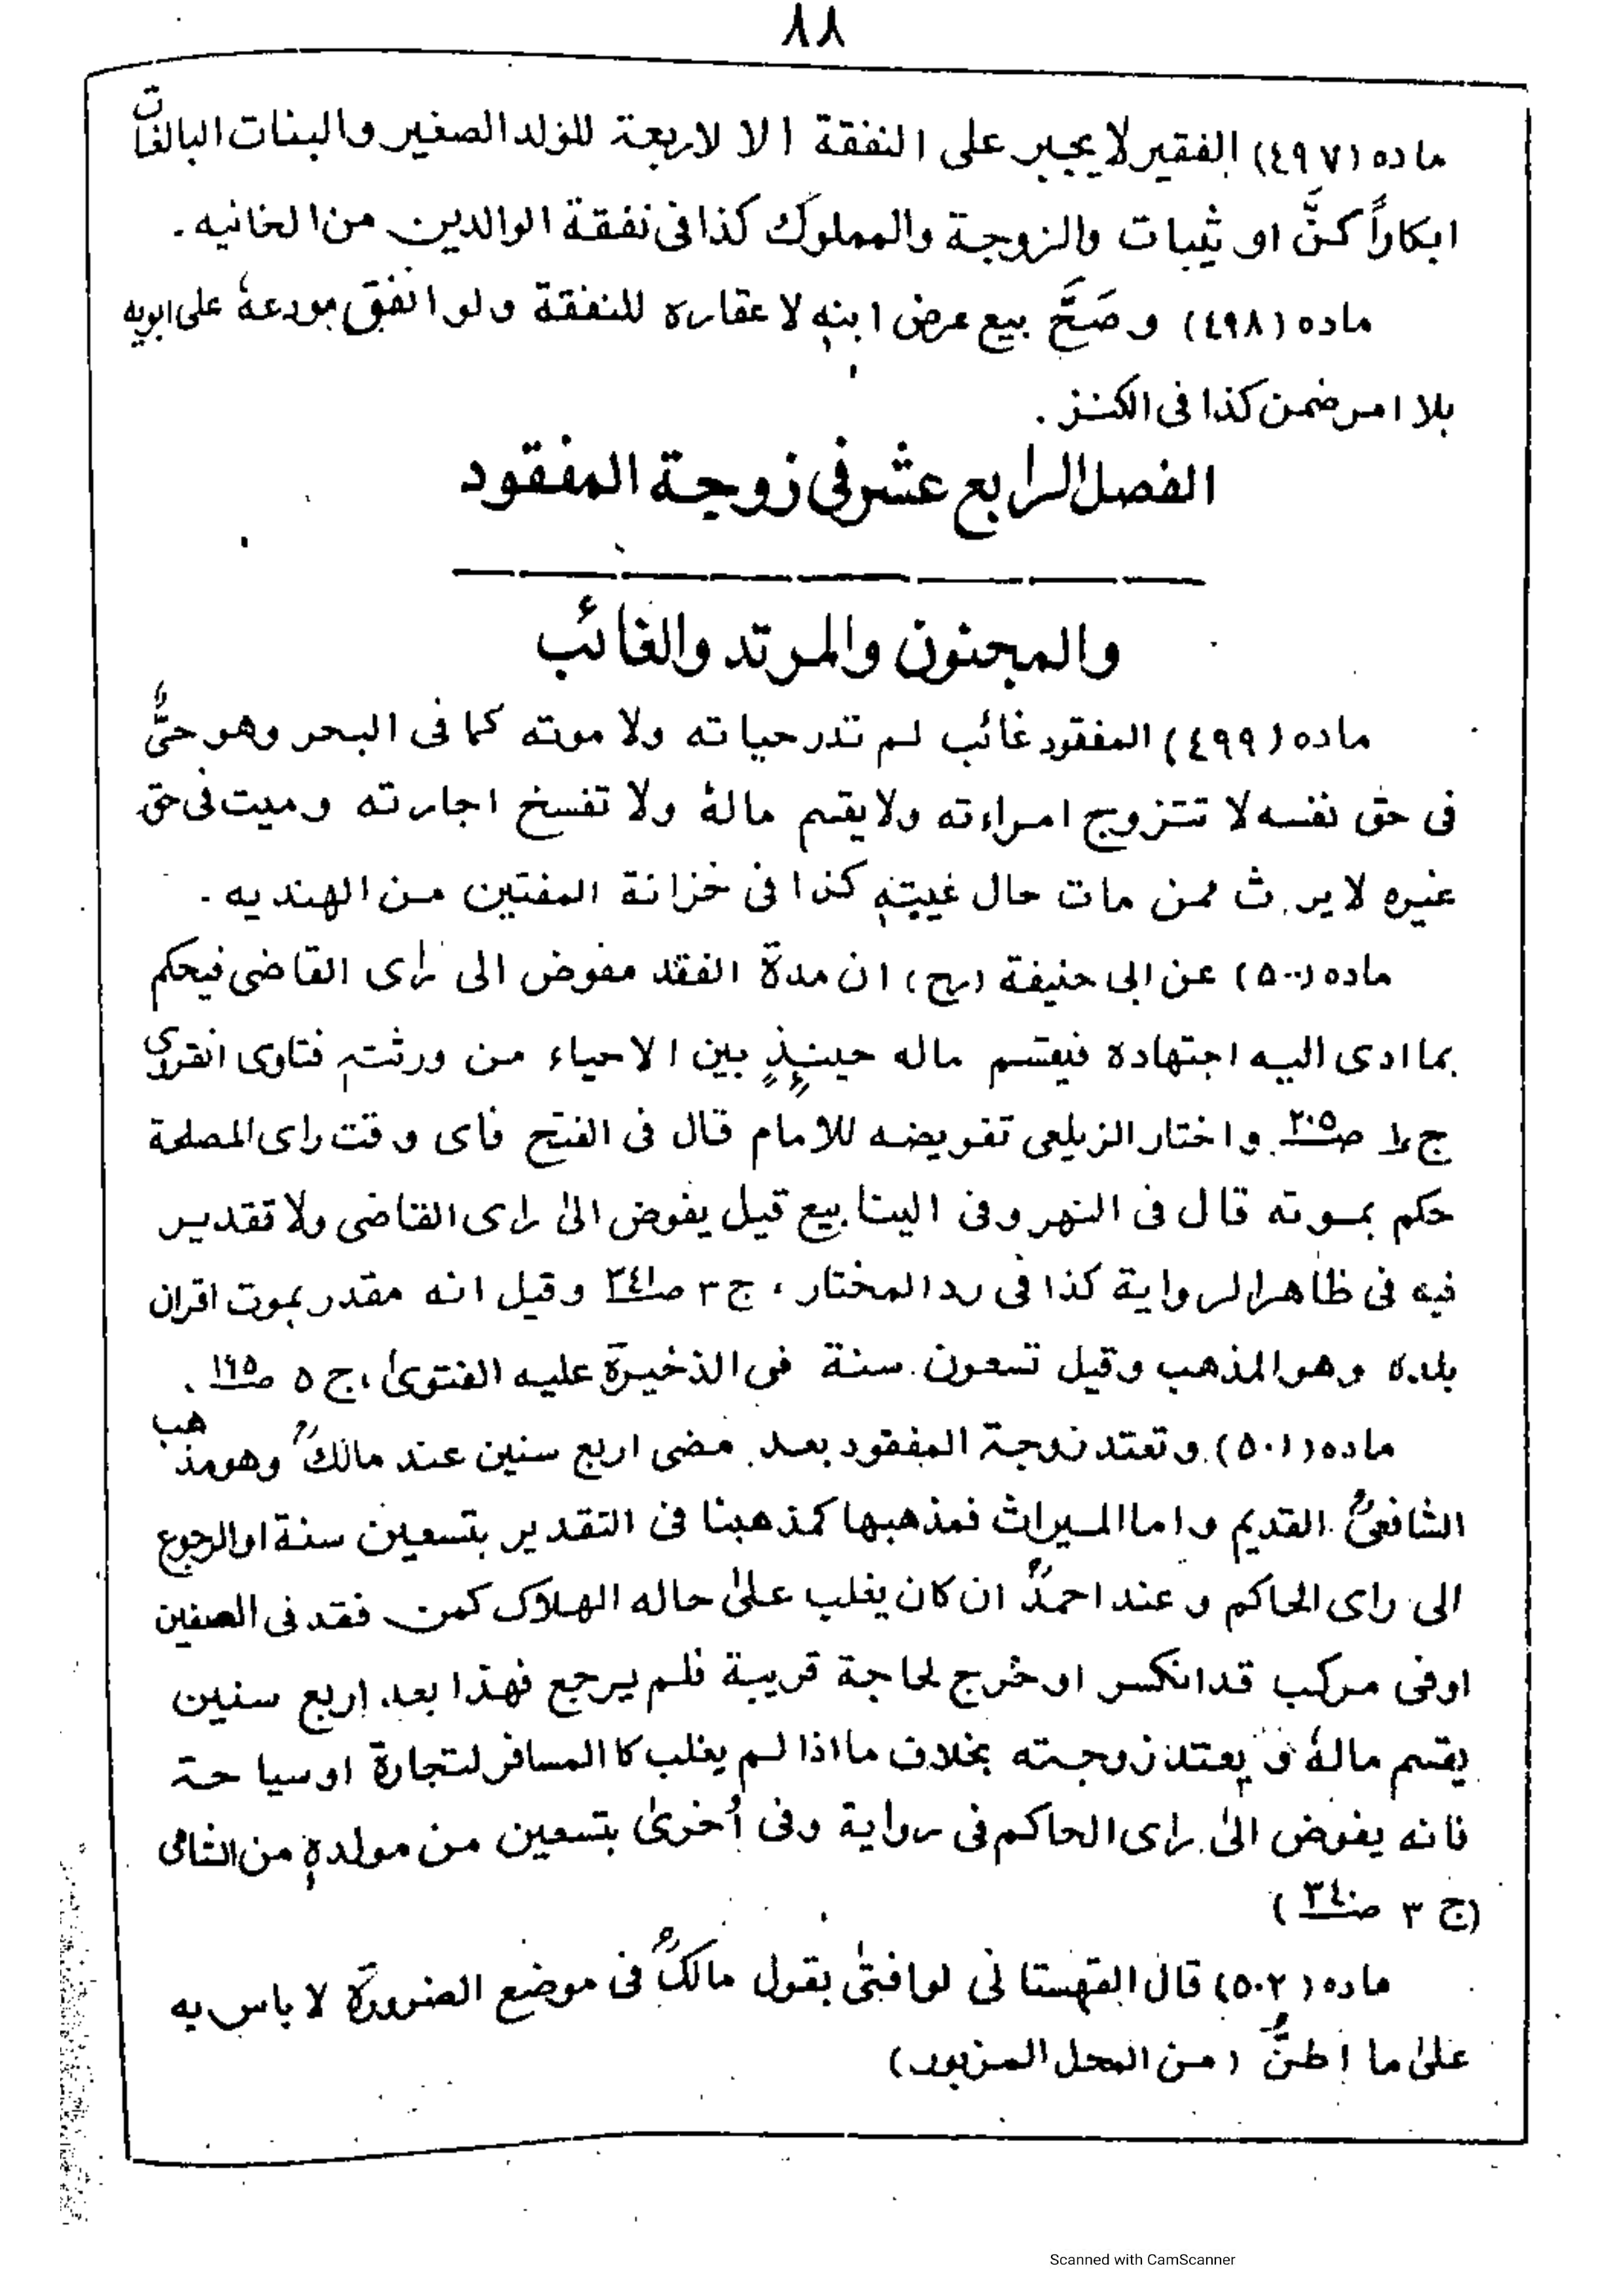 ٨٨
ماده (٤٩٧) الفقير لا يجبر على النفقة الا لاربعة للولد الصغير والبنات البالغات
ابكاراً كنَّ او ثيبات والزوجة والمملوك كذا فى نفقة الوالدين من الخانيه .
ماده (٤٩٨) و صَحَّ بيع عرض ابنه لا عقاره للنفقة ولو انفق مودعهٗ على ابويه
بلا امر ضمن كذا فى الكنز .
الفصل الرابع عشر فى زوجة المفقود
والمجنون والمرتد والغائب
ماده (٤٩٩) المفقود غائب لم تدر حياته ولا موته كما فى البحر وهو حىٌّ
فى حق نفسه لا تتزوج امراءته ولا يقسم مالهٗ ولا تفسخ اجارته وميت فى حق
غيره لا يرث ممن مات حال غيبتهٖ كذا فى خزانة المفتين من الهنديه .
ماده (٥٠٠) عن ابى حنيفة (رح) ان مدة الفقد مفوض الى راى القاضى فيحكم
بما ادى اليه اجتهاده فيقسم ماله حينئذٍ بين الاحياء من ورثتهٖ فتاوى انقروى
ج ١ صـ٢٠٥ واختار الزيلعى تفويضه للامام قال فى الفتح فاى وقت راى المصلحة
حكم بموته قال فى النهر وفى الينابيع قيل يفوض الىٰ راى القاضى ولا تقدير
فيه فى ظاهر الرواية كذا فى رد المختار ، ج ٣ صـ٣٤١ وقيل انه مقدر بموت اقران
بلده وهو المذهب وقيل تسعون سنة فى الذخيرة عليه الفتوىٰ ، ج ٥ صـ١٦٥ .
ماده (٥٠١) و تعتد زوجة المفقود بعد مضى اربع سنين عند مالكؒ وهو مذهب
الشافعىؒ القديم واما الميراث فمذهبها كمذهبنا فى التقدير بتسعين سنة او الرجوع
الى راى الحاكم و عند احمدؒ ان كان يغلب علىٰ حاله الهلاك كمن فقد فى الصفين
اوفى مركب قد انكسر او خرج لحاجة قريبة فلم يرجع فهذا بعد اربع سنين
يقسم مالهٗ و يعتد زوجته بخلاف ما اذا لم يغلب كا المسافر لتجارة او سياحة
فانه يفوض الىٰ راى الحاكم فى رواية وفى اُخرىٰ بتسعين من مولدهٖ من الشامى
(ج ٣ صـ٣٤٠)
ماده (٥٠٢) قال القهستانى لو افتىٰ بقول مالكؒ فى موضع الضرورة لا باس به
علىٰ ما اظنُّ (من المحل المزبور)
Scanned with CamScanner